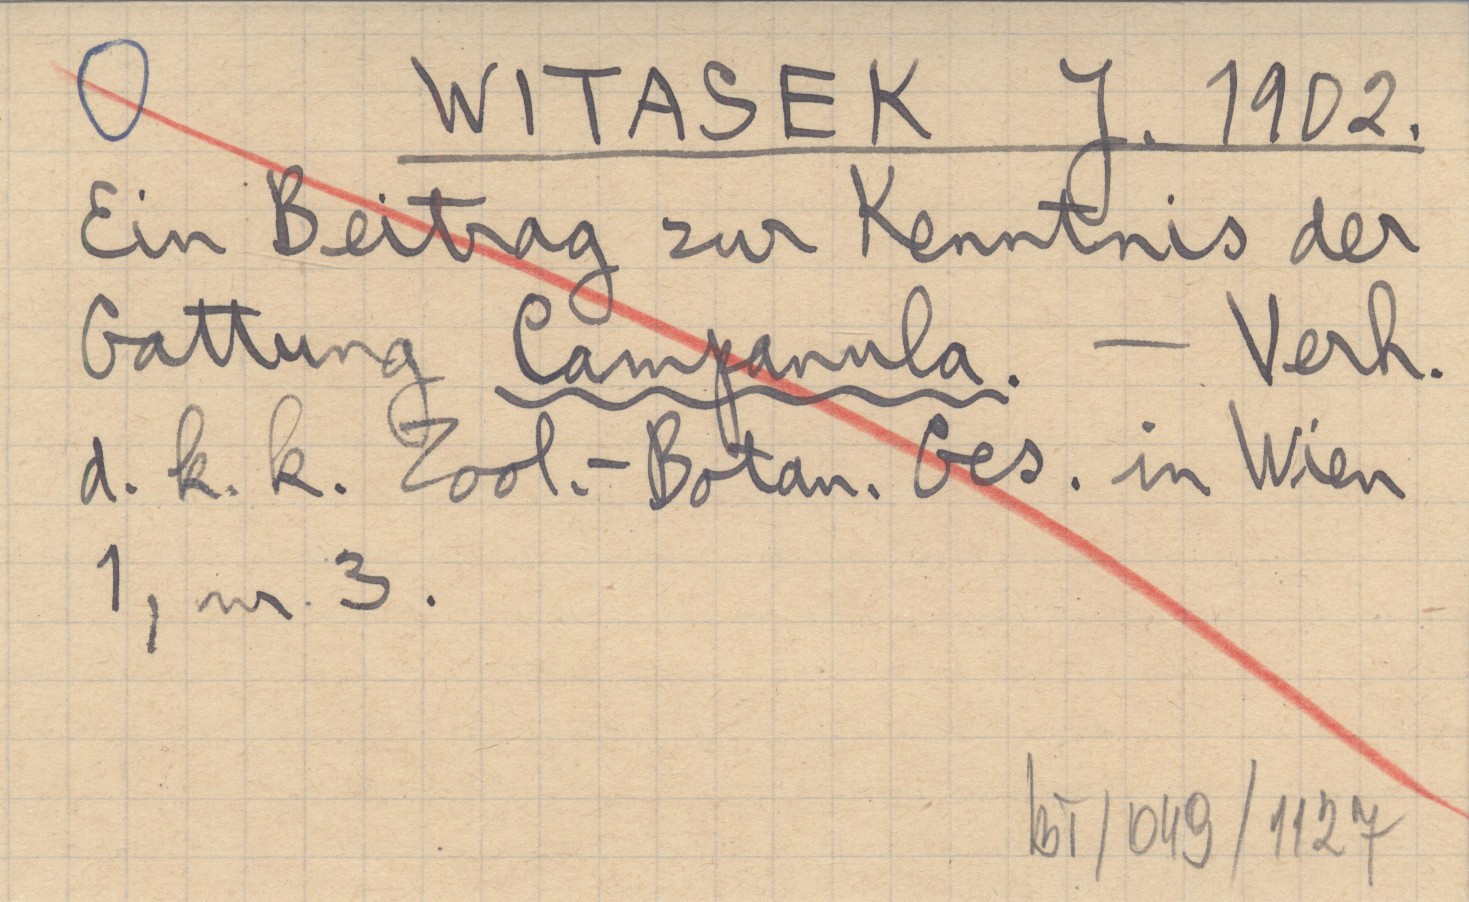 WITASEK J. 1902.
Ein Beitrag zur Kenntnis der
Gattung Campanula. — Verh.
d. k. k. Zool.-Botan. Ges. in Wien
1, nr. 3.
bT/049/1127